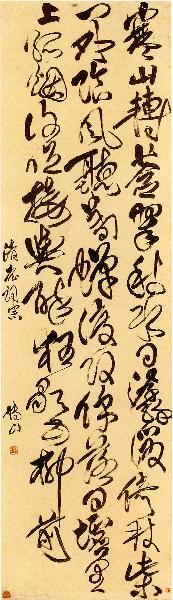 寒山轉蒼翠秋水日潺湲倚杖柴
門外臨風聽暮蟬渡頭餘落日墟里
上孤煙復值接輿醉狂歌五柳前
老詞宗
傅山